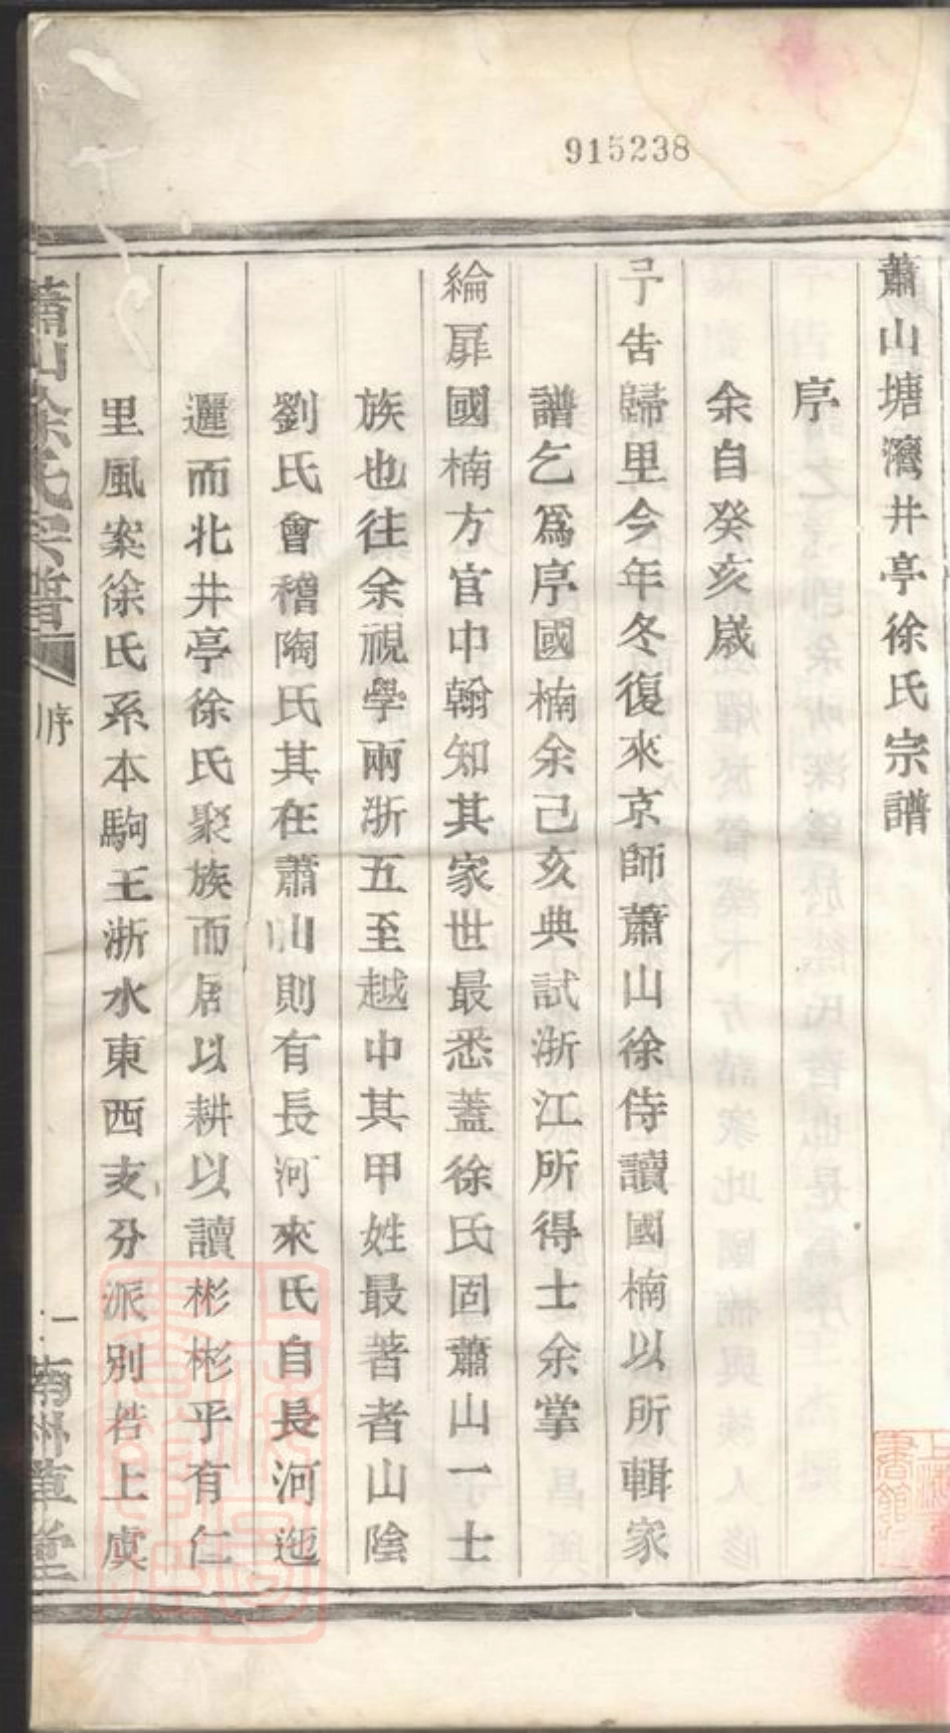 915238
蕭山塘灣井亭徐氏宗譜
序
余自癸亥歲
予告歸里今年冬復來京師蕭山徐侍讀國楠以所輯家
譜乞爲序國楠余己亥典試浙江所得士余掌
綸扉國楠方官中翰知其家世最悉蓋徐氏固蕭山一士
族也往余視學兩浙五至越中其甲姓最著者山陰
劉氏會稽陶氏其在蕭山則有長河來氏自長河迤
邐而北井亭徐氏聚族而居以耕以讀彬彬乎有仁
里風案徐氏系本駒王浙水東西支分派別若上虞
蕭山徐氏宗譜
序
一
南州草堂